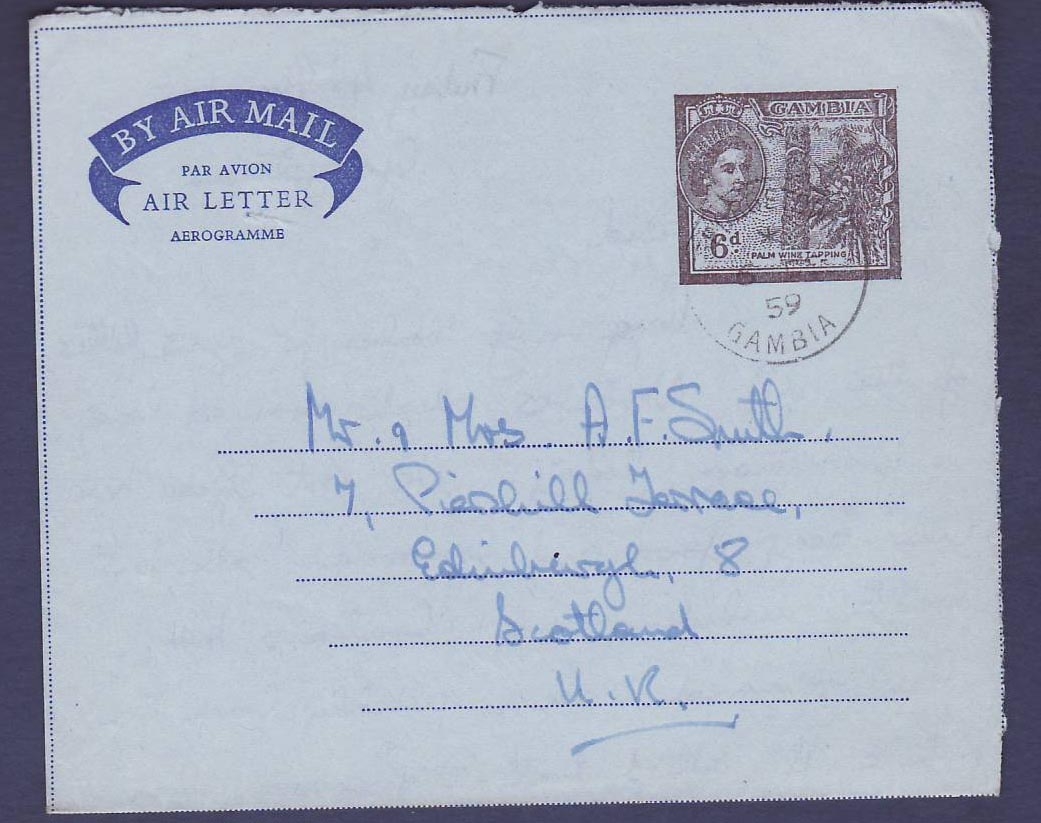 BY AIR MAIL
PAR AVION
AIR LETTER
AEROGRAMME
GAMBIA
6d
PALM WINE TAPPING
59
GAMBIA
Mr. & Mrs. A.F. Smith,
7, Piershill Terrace,
Edinburgh, 8
Scotland
U.K.